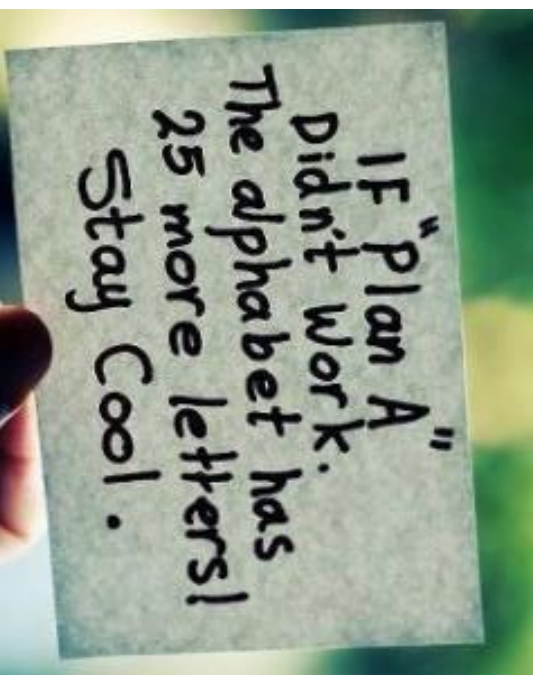 IF "Plan A"
Didn't Work.
The alphabet has
25 more letters!
Stay Cool.